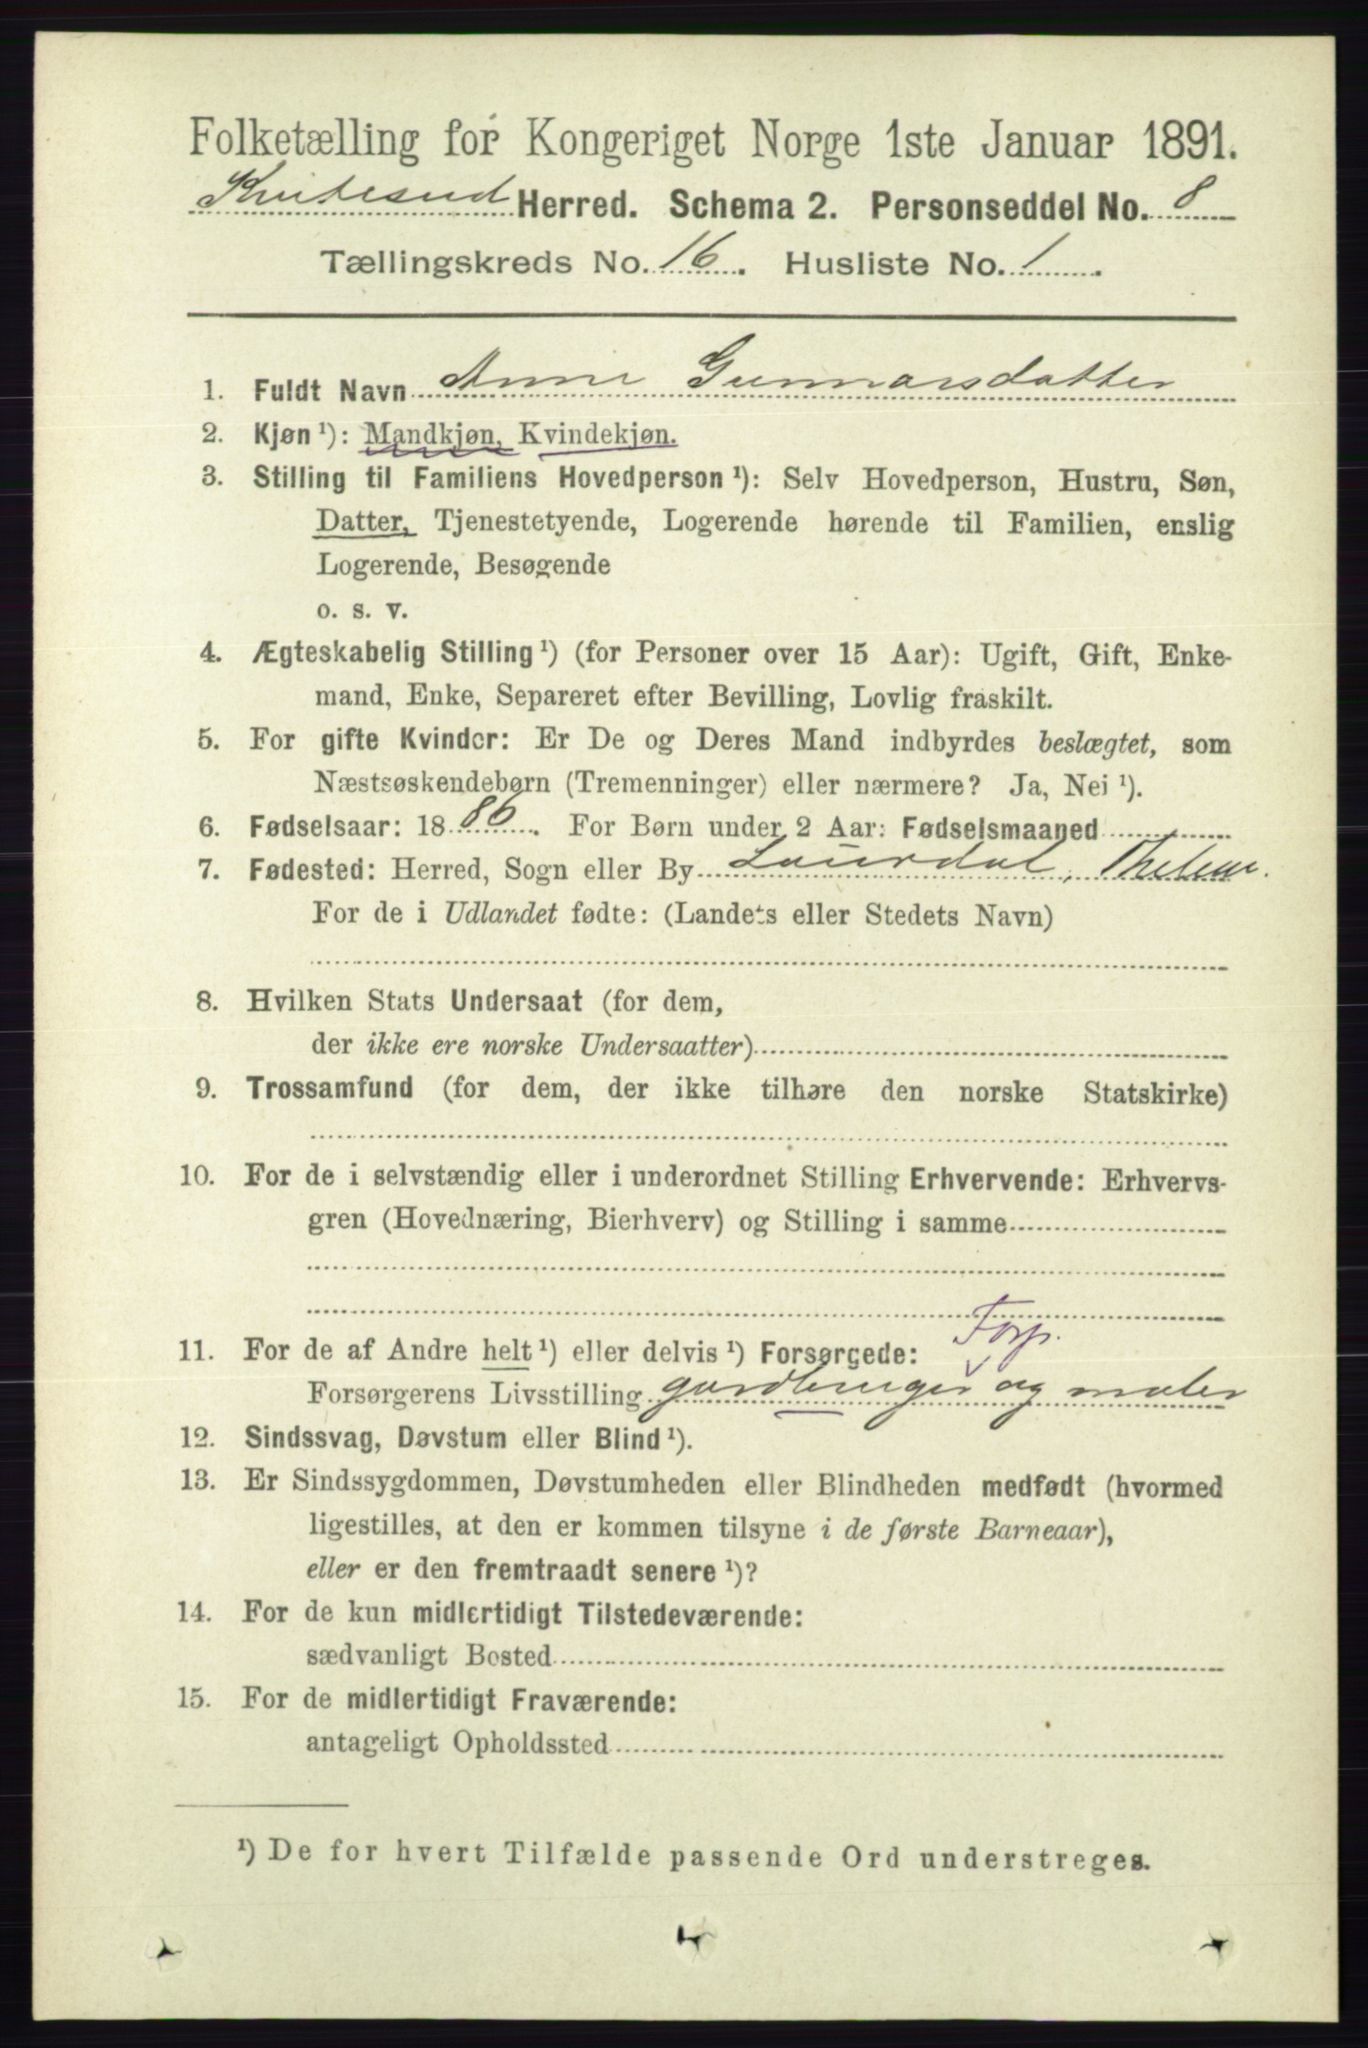 Folketælling for Kongeriget Norge 1ste Januar 1891.
Kvitesud Herred. Schema 2. Personseddel No. 8
Tællingskreds No. 16. Husliste No. 1.
1. Fuldt Navn Anne Gunnarsdatter
2. Kjøn ¹): Mandkjøn, Kvindekjøn.
3. Stilling til Familiens Hovedperson ¹): Selv Hovedperson, Hustru, Søn,
Datter, Tjenestetyende, Logerende hørende til Familien, enslig
Logerende, Besøgende
o. s. v.
4. Ægteskabelig Stilling ¹) (for Personer over 15 Aar): Ugift, Gift, Enke-
mand, Enke, Separeret efter Bevilling, Lovlig fraskilt.
5. For gifte Kvinder: Er De og Deres Mand indbyrdes beslægtet, som
Næstsøskendebørn (Tremenninger) eller nærmere? Ja, Nei ¹).
6. Fødselsaar: 1886. For Børn under 2 Aar: Fødselsmaaned
7. Fødested: Herred, Sogn eller By Laurdal, Thelem.
For de i Udlandet fødte: (Landets eller Stedets Navn)
8. Hvilken Stats Undersaat (for dem,
der ikke ere norske Undersaatter)
9. Trossamfund (for dem, der ikke tilhøre den norske Statskirke)
10. For de i selvstændig eller i underordnet Stilling Erhvervende: Erhvervs-
gren (Hovednæring, Bierhverv) og Stilling i samme
Forp.
11. For de af Andre helt ¹) eller delvis ¹) Forsørgede:
Forsørgerens Livsstilling gardbruger og maler
12. Sindssvag, Døvstum eller Blind ¹).
13. Er Sindssygdommen, Døvstumheden eller Blindheden medfødt (hvormed
ligestilles, at den er kommen tilsyne i de første Barneaar),
eller er den fremtraadt senere ¹)?
14. For de kun midlertidigt Tilstedeværende:
sædvanligt Bosted
15. For de midlertidigt Fraværende:
antageligt Opholdssted
¹) De for hvert Tilfælde passende Ord understreges.